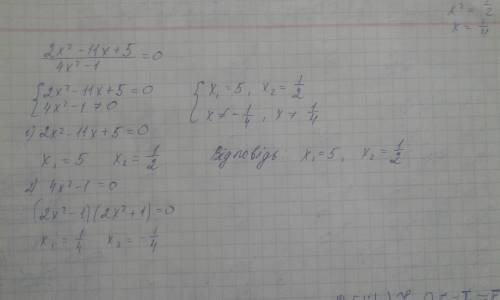 x² = 1/2
x = 1/4
(2x² - 11x + 5)/(4x² - 1) = 0
{2x² - 11x + 5 = 0
4x² - 1 ≠ 0
{x₁ = 5, x₂ = 1/2
x ≠ -1/4, x ≠ 1/4
1) 2x² - 11x + 5 = 0
x₁ = 5 x₂ = 1/2
Відповідь x₁ = 5, x₂ = 1/2
2) 4x² - 1 = 0
(2x² - 1)(2x² + 1) = 0
x₁ = 1/4 x₂ = -1/4